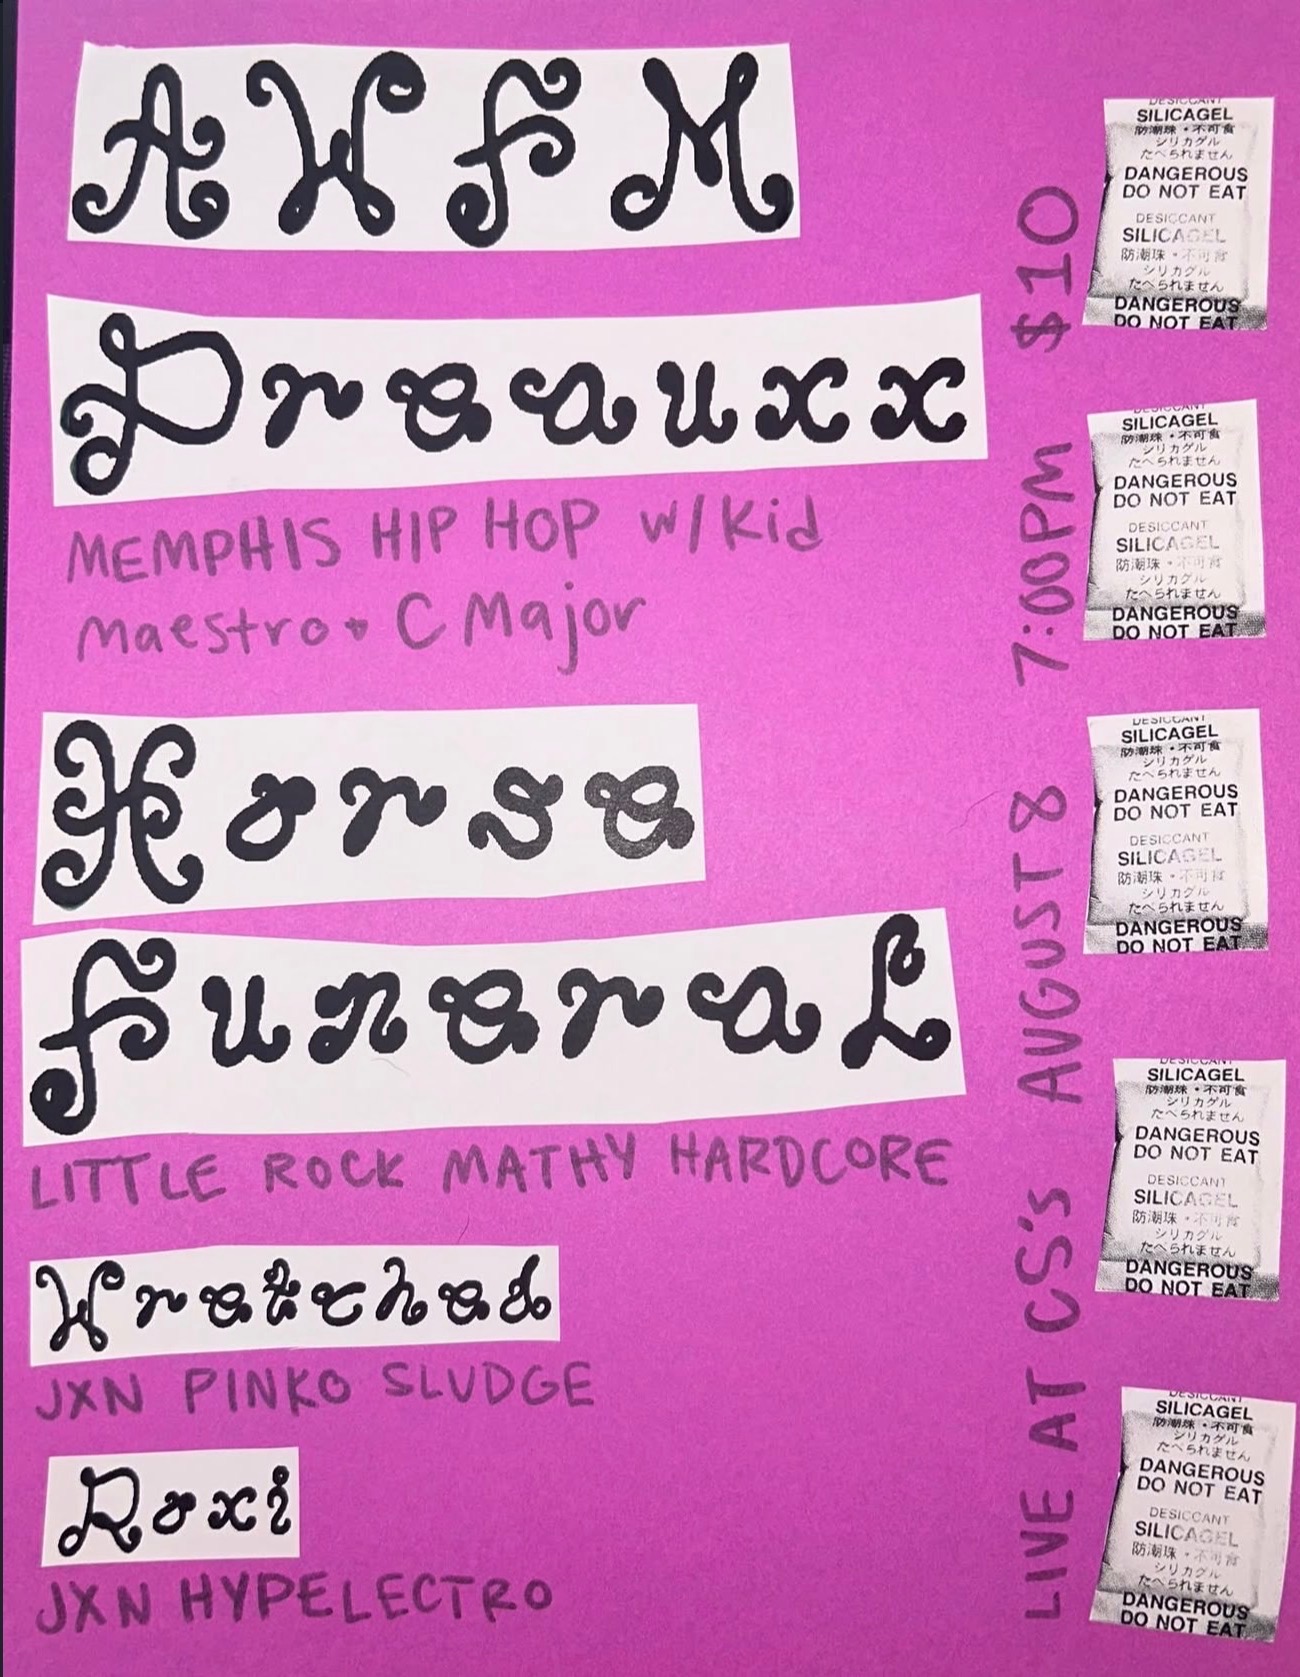 AWFM
Dreauxx
MEMPHIS HIP HOP w/Kid
maestro + C Major
Horse
FuneraL
LITTLE ROCK MATHY HARDCORE
Wretched
JXN PINKO SLUDGE
Roxi
JXN HYPELECTRO
LIVE AT CS's AUGUST 8 7:00PM $10
DESICCANT
SILICAGEL
防潮珠・不可食
シリカゲル
たべられません
DANGEROUS
DO NOT EAT
DESICCANT
SILICAGEL
防潮珠・不可食
シリカグル
たべられません
DANGEROUS
DO NOT EAT
DESICCANT
SILICAGEL
防潮珠・不可食
シリカグル
たべられません
DANGEROUS
DO NOT EAT
DESICCANT
SILICAGEL
防潮珠・不可食
シリカグル
たべられません
DANGEROUS
DO NOT EAT
DESICCANT
SILICAGEL
防潮珠・不可食
シリカグル
たべられません
DANGEROUS
DO NOT EAT
DESICCANT
SILICAGEL
防潮珠・不可食
シリカグル
たべられません
DANGEROUS
DO NOT EAT
DESICCANT
SILICAGEL
防潮珠・不可食
シリカグル
たべられません
DANGEROUS
DO NOT EAT
DESICCANT
SILICAGEL
防潮珠・不可食
シリカグル
たべられません
DANGEROUS
DO NOT EAT
DESICCANT
SILICAGEL
防潮珠・不可食
シリカグル
たべられません
DANGEROUS
DO NOT EAT
DESICCANT
SILICAGEL
防潮珠・不可食
シリカグル
たべられません
DANGEROUS
DO NOT EAT